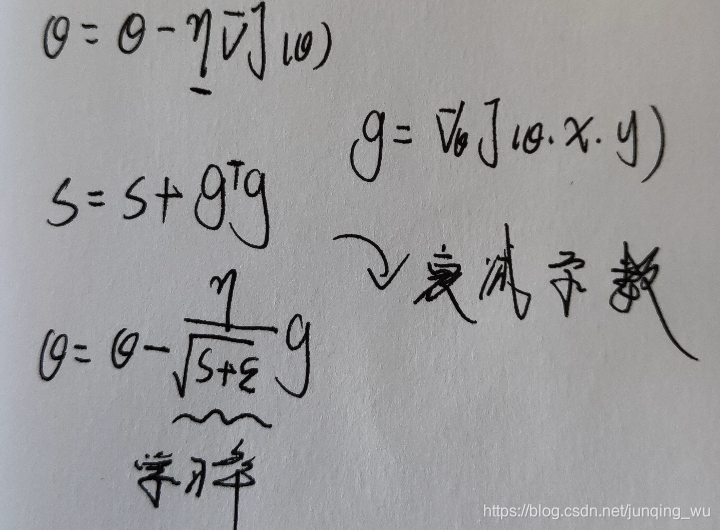 θ = θ - η∇J(θ)
g = ∇θJ(θ.x.y)
s = s + gᵀg
衰减字数
θ = θ - η/√(s+ε) g
学习率
https://blog.csdn.net/junqing_wu